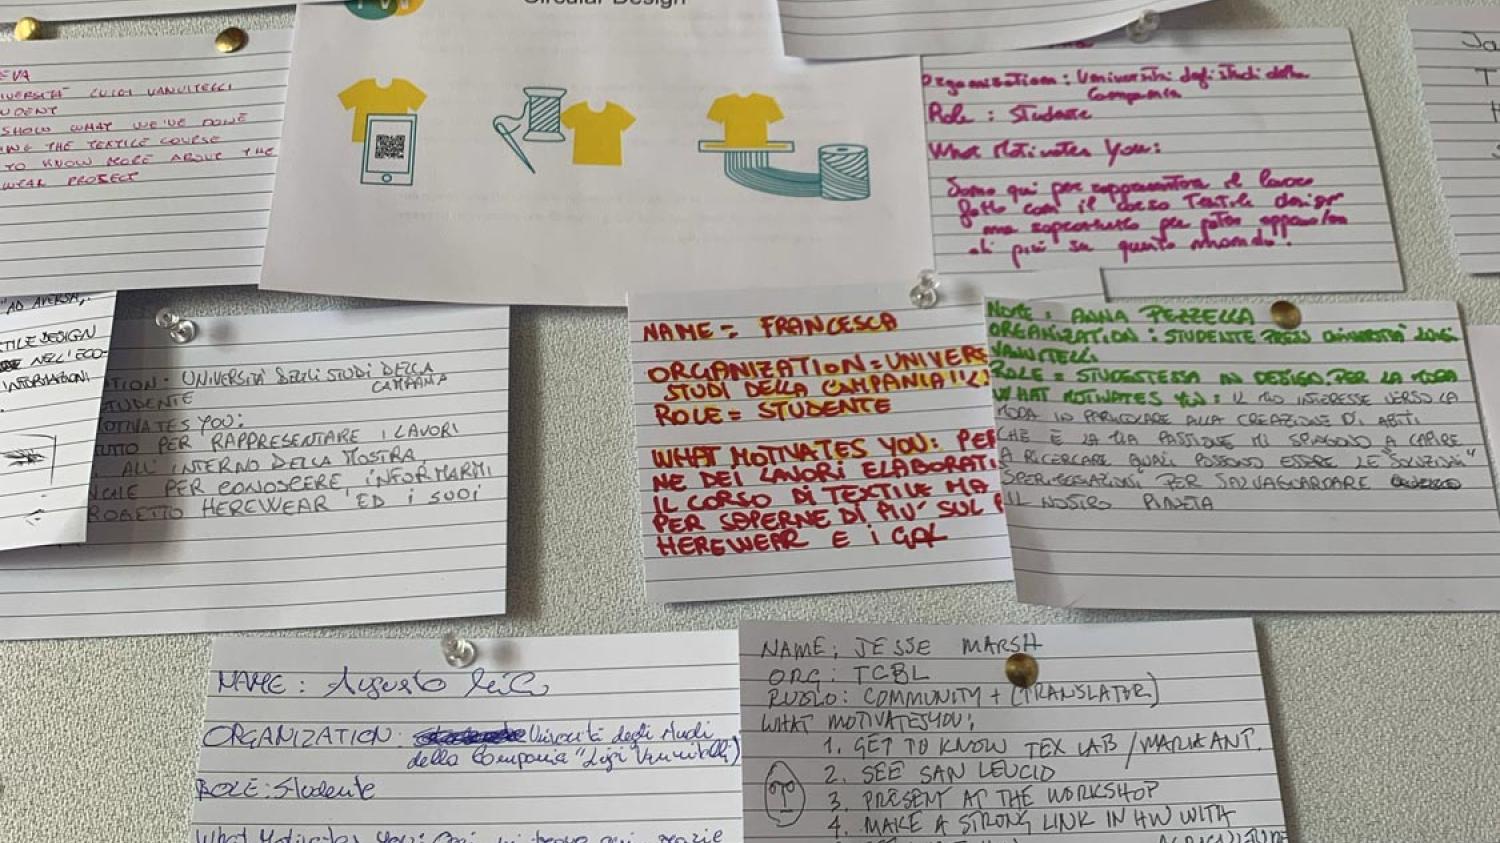 Circular Design
EVA
LUIGI VANVITELLI
SHOW WHAT WE'VE DONE
THE TEXTILE COURSE
TO KNOW MORE ABOUT THE
WEAR PROJECT
Organisation: Università degli studi della
Campania
Role: Studente
What Motivates You:
Sono qui per rappresentare il lavoro
fatto con il corso Textile design
ma soprattutto per poter
di più su questo mondo!
Ja
T
H
"AD AVERSA,
TILE DESIGN
NELL'ECO-
INFORMAZIONI
TION: UNIVERSITÀ DEGLI STUDI DELLA
CAMPANIA
TUDENTE
OTIVATES YOU:
UTTO PER RAPPRESENTARE I LAVORI
ALL'INTERNO DELLA MOSTRA
PER CONOSCERE INFORMARMI
ROGETTO HEREWEAR ED I SUOI
NAME = FRANCESCA
ORGANIZATION = UNIVERS
STUDI DELLA CAMPANIA "L
ROLE = STUDENTE
WHAT MOTIVATES YOU: PER
NE DEI LAVORI ELABORATI
IL CORSO DI TEXTILE MA
PER SAPERNE DI PIU' SUL P
HEREWEAR E I GAL
NOME: ANNA PEZZELLA
ORGANIZATION: STUDENTE PRESSO UNIVERSITÀ LUIGI
VANVITELLI
ROLE = STUDENTESSA IN DESIGN PER LA MODA
WHAT MOTIVATES YOU: IL MIO INTERESSE VERSO LA
MODA IN PARTICOLARE ALLA CREAZIONE DI ABITI
CHE È LA MIA PASSIONE MI SPINGONO A CAPIRE
A RICERCARE QUALI POSSONO ESSERE LE "SOLUZIONI"
SPERIMENTAZIONI PER SALVAGUARDARE
IL NOSTRO PIANETA
NAME: Augusto
ORGANIZATION: Università degli studi
della Campania "Luigi Vanvitelli)
ROLE: Studente
What Motivates you: qui grazie
NAME: JESSE MARSH
ORG: TCBL
RUOLO: COMMUNITY + (TRANSLATOR)
WHAT MOTIVATES YOU:
1. GET TO KNOW TEX LAB / MARIANT.
2. SEE SAN LEUCIO
3. PRESENT AT THE WORKSHOP
4. MAKE A STRONG LINK IN HW WITH
AGRICULTURE